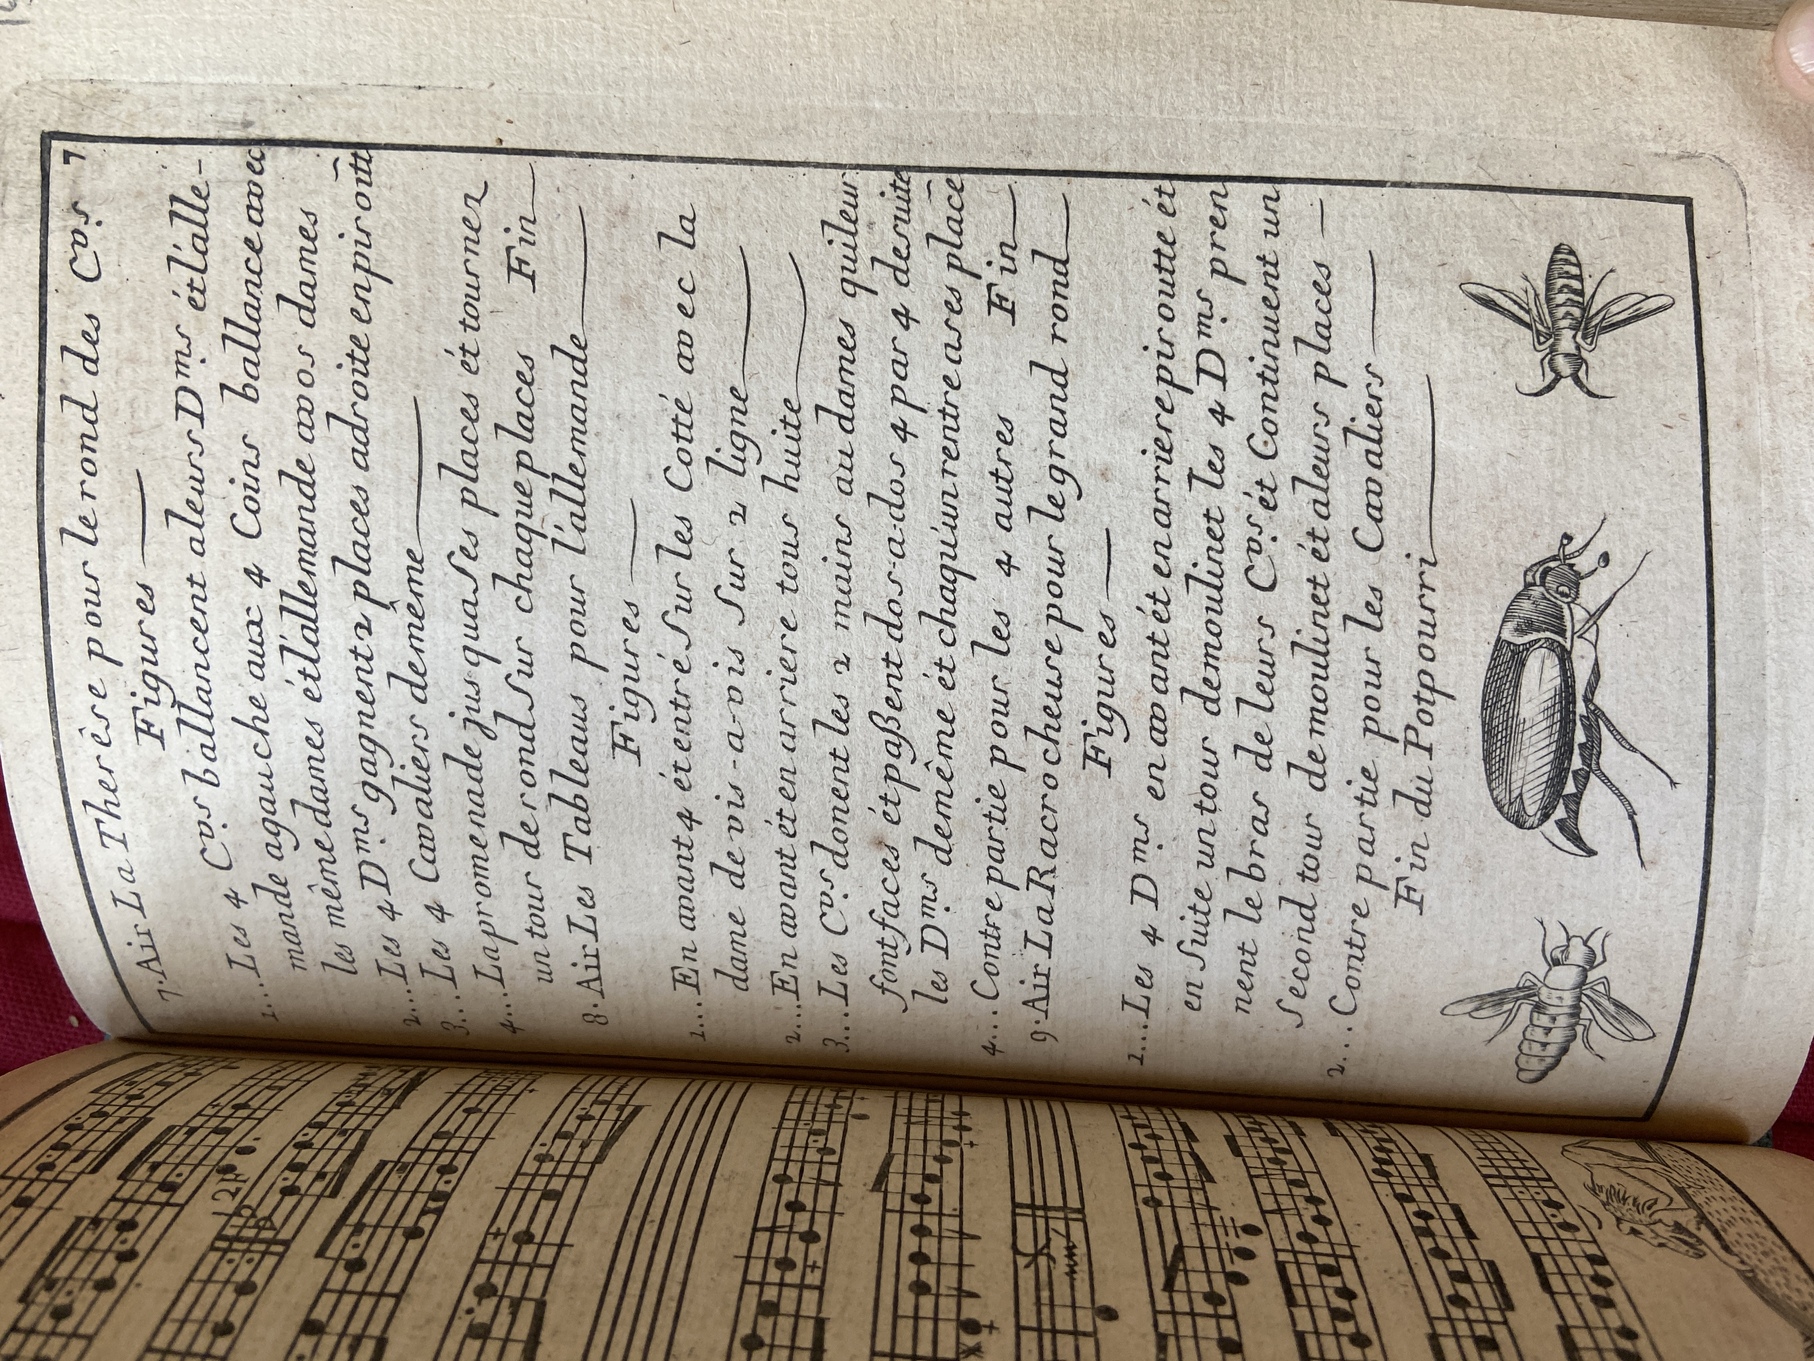 7
7. Air La Therêse pour le rond des Cᵛᵒˢ.
Figures
1....Les 4 Cᵛᵒˢ ballancent a leurs Dᵐˢ. ét lalle-
mande a gauche aux 4 Coins ballance avec
les même dames ét lallemande a vos dames
2...Les 4 Dᵐˢ gagnent 2 places a droite en piroütt
3...Les 4 Cavaliers demême
4...La promenade jus qua Ses places ét tourner
un tour de rond Sur chaque places Fin
8. Air Les Tableaus pour l'allemande
Figures
1....En avant 4 ét entré Sur les Cotté avec la
dame de vis-a-vis Sur 2 ligne
2...En avant ét en arriere tous huite
3...Les Cᵛᵒˢ. donent les 2 mains au dames qui leur
font faces ét paßent dos-a-dos 4 par 4 desuite
les Dᵐˢ. demême ét chaqu'un rentre a ses place
4...Contre partie pour les 4 autres Fin
9. Air La Racrocheuse pour le grand rond
Figures
1....Les 4 Dᵐˢ en avant ét en arriere piroutte ét
en Suite un tour de moulinet les 4 Dᵐˢ pren
nent le bras de leurs Cᵛᵒˢ ét Continuent un
Second tour de moulinet ét a leurs places
2...Contre partie pour les Cavaliers
Fin du Potpourri